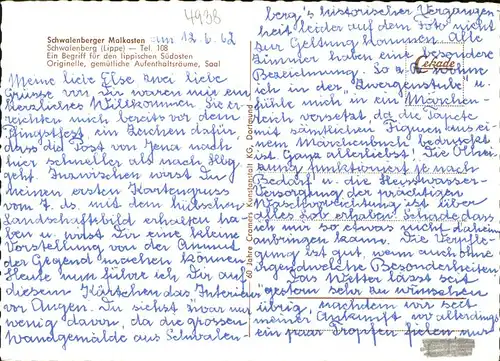 4938
Schwalenberger Malkasten am 12.6.62
Schwalenberg (Lippe) — Tel. 108
Ein Begriff für den lippischen Südosten
Originelle, gemütliche Aufenthaltsräume, Saal
Meine liebe Else zwei liebe
Grüsse vor Dir waren mir ein
herzliches Willkommen. Sie er-
reichten mich bereits vor dem
Pfingstfest, ein Zeichen dafür,
dass die Post von Jena nach
hier schneller als nach Hbg
geht. Inzwischen wirst Du
meinen ersten Kartengruss
vom 7. ds. mit dem hübschen
Landschaftsbild erhalten ha-
ben u. wirst Dir eine kleine
Vorstellung von der Anmut
der Gegend machen können.
Heute nun führe ich Dir auf
diesem Kärtchen das Interieur
vor Augen. Du siehst zwar nur
wenig davon, da die grossen
Wandgemälde aus Schwalen-
berg's historischer Vergangen-
heit leider auf dem Foto nicht
zur Geltung kommen. Alle
Zimmer haben eine besondere
Bezeichnung. So z.B. wohne
ich in der "Zwergenstube" u.
fühle mich in ein Märchen-
reich versetzt, da die Tapete
mit sämtlichen Figuren aus ei-
nem Märchenbuch bedruckt
ist. Ganz allerliebst! Die
funktioniert je nach
Bedarf u. die Heisswasser-
Versorgung der prächtigen
Waschvorrichtung ist über
alles Lob erhaben! Schade dass
ich mir so etwas nicht daheim
anbringen kann. Die Verpfle-
gung ist gut, wenn auch ohne
irgendwelche Besonderheiten
Das Wetter lässt seit
gestern sehr zu wünschen
übrig, nachdem wir seit
meiner Ankunft wo allerdings
ein paar Tropfen fielen nur
Cekade
60 Jahre Cramers Kunstanstalt KG, Dortmund